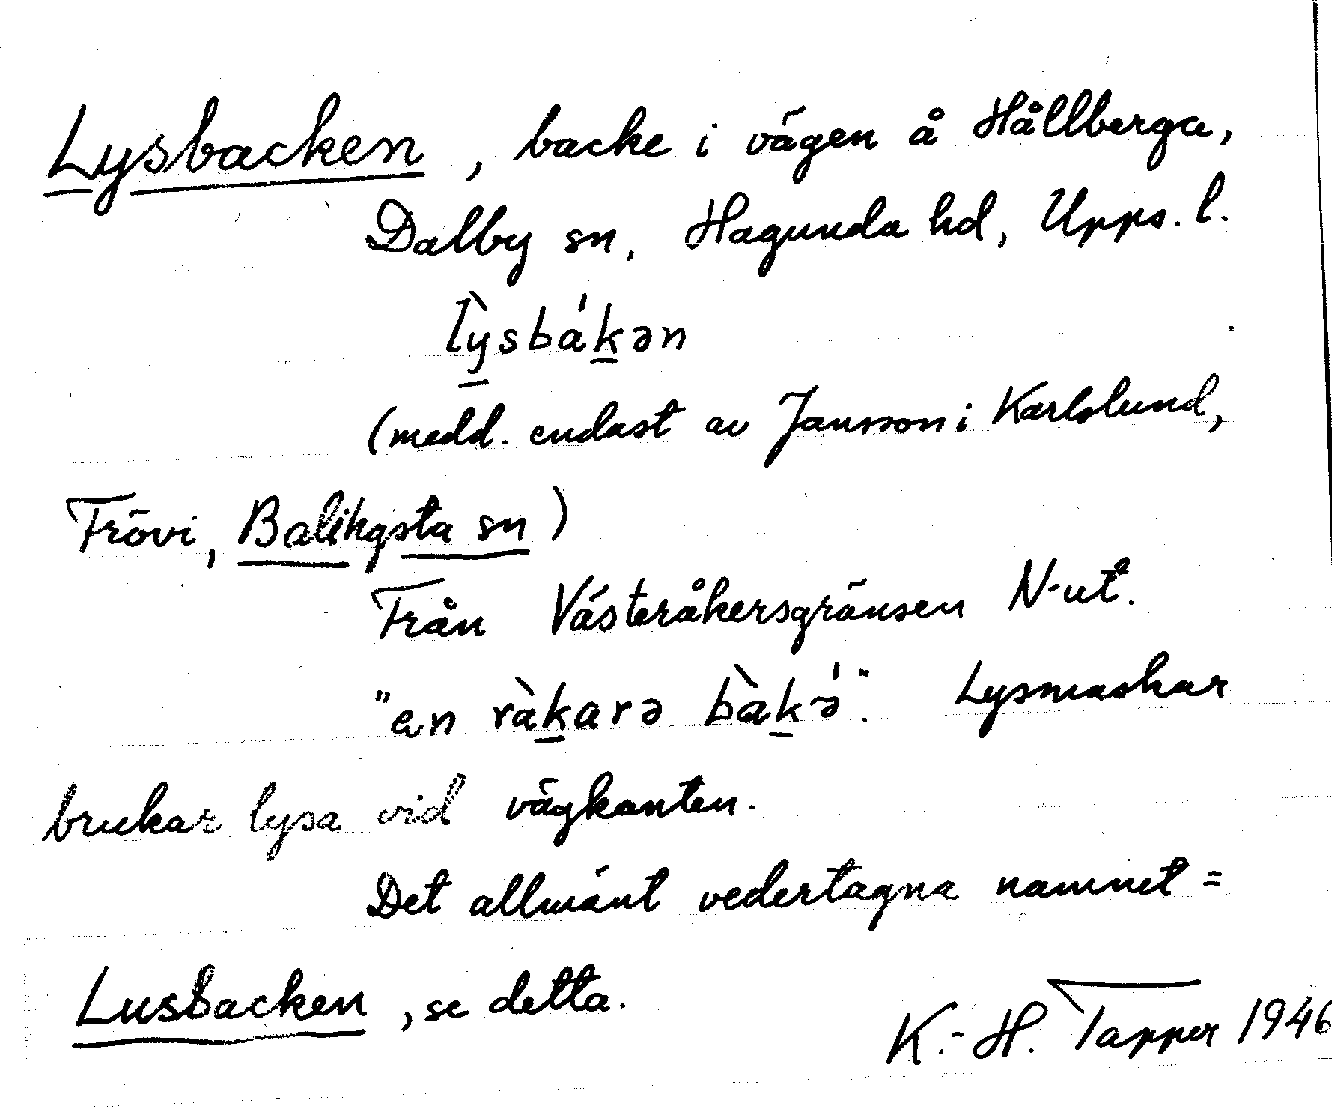 Lysbacken, backe i vägen å Hållberga,
Dalby sn, Hagunda hd, Upps. l.
lỳsbák̲ən
(medd. endast av Jansson i Karlslund,
Frövi, Balingsta sn)
Från Västeråkersgränsen N-ut.
"en ràk̲arə bàk̲ə́". Lysmaskar
brukar lysa vid vägkanten.
Det allmänt vedertagna namnet =
Lusbacken, se detta.
K.-H. Tapper 1946